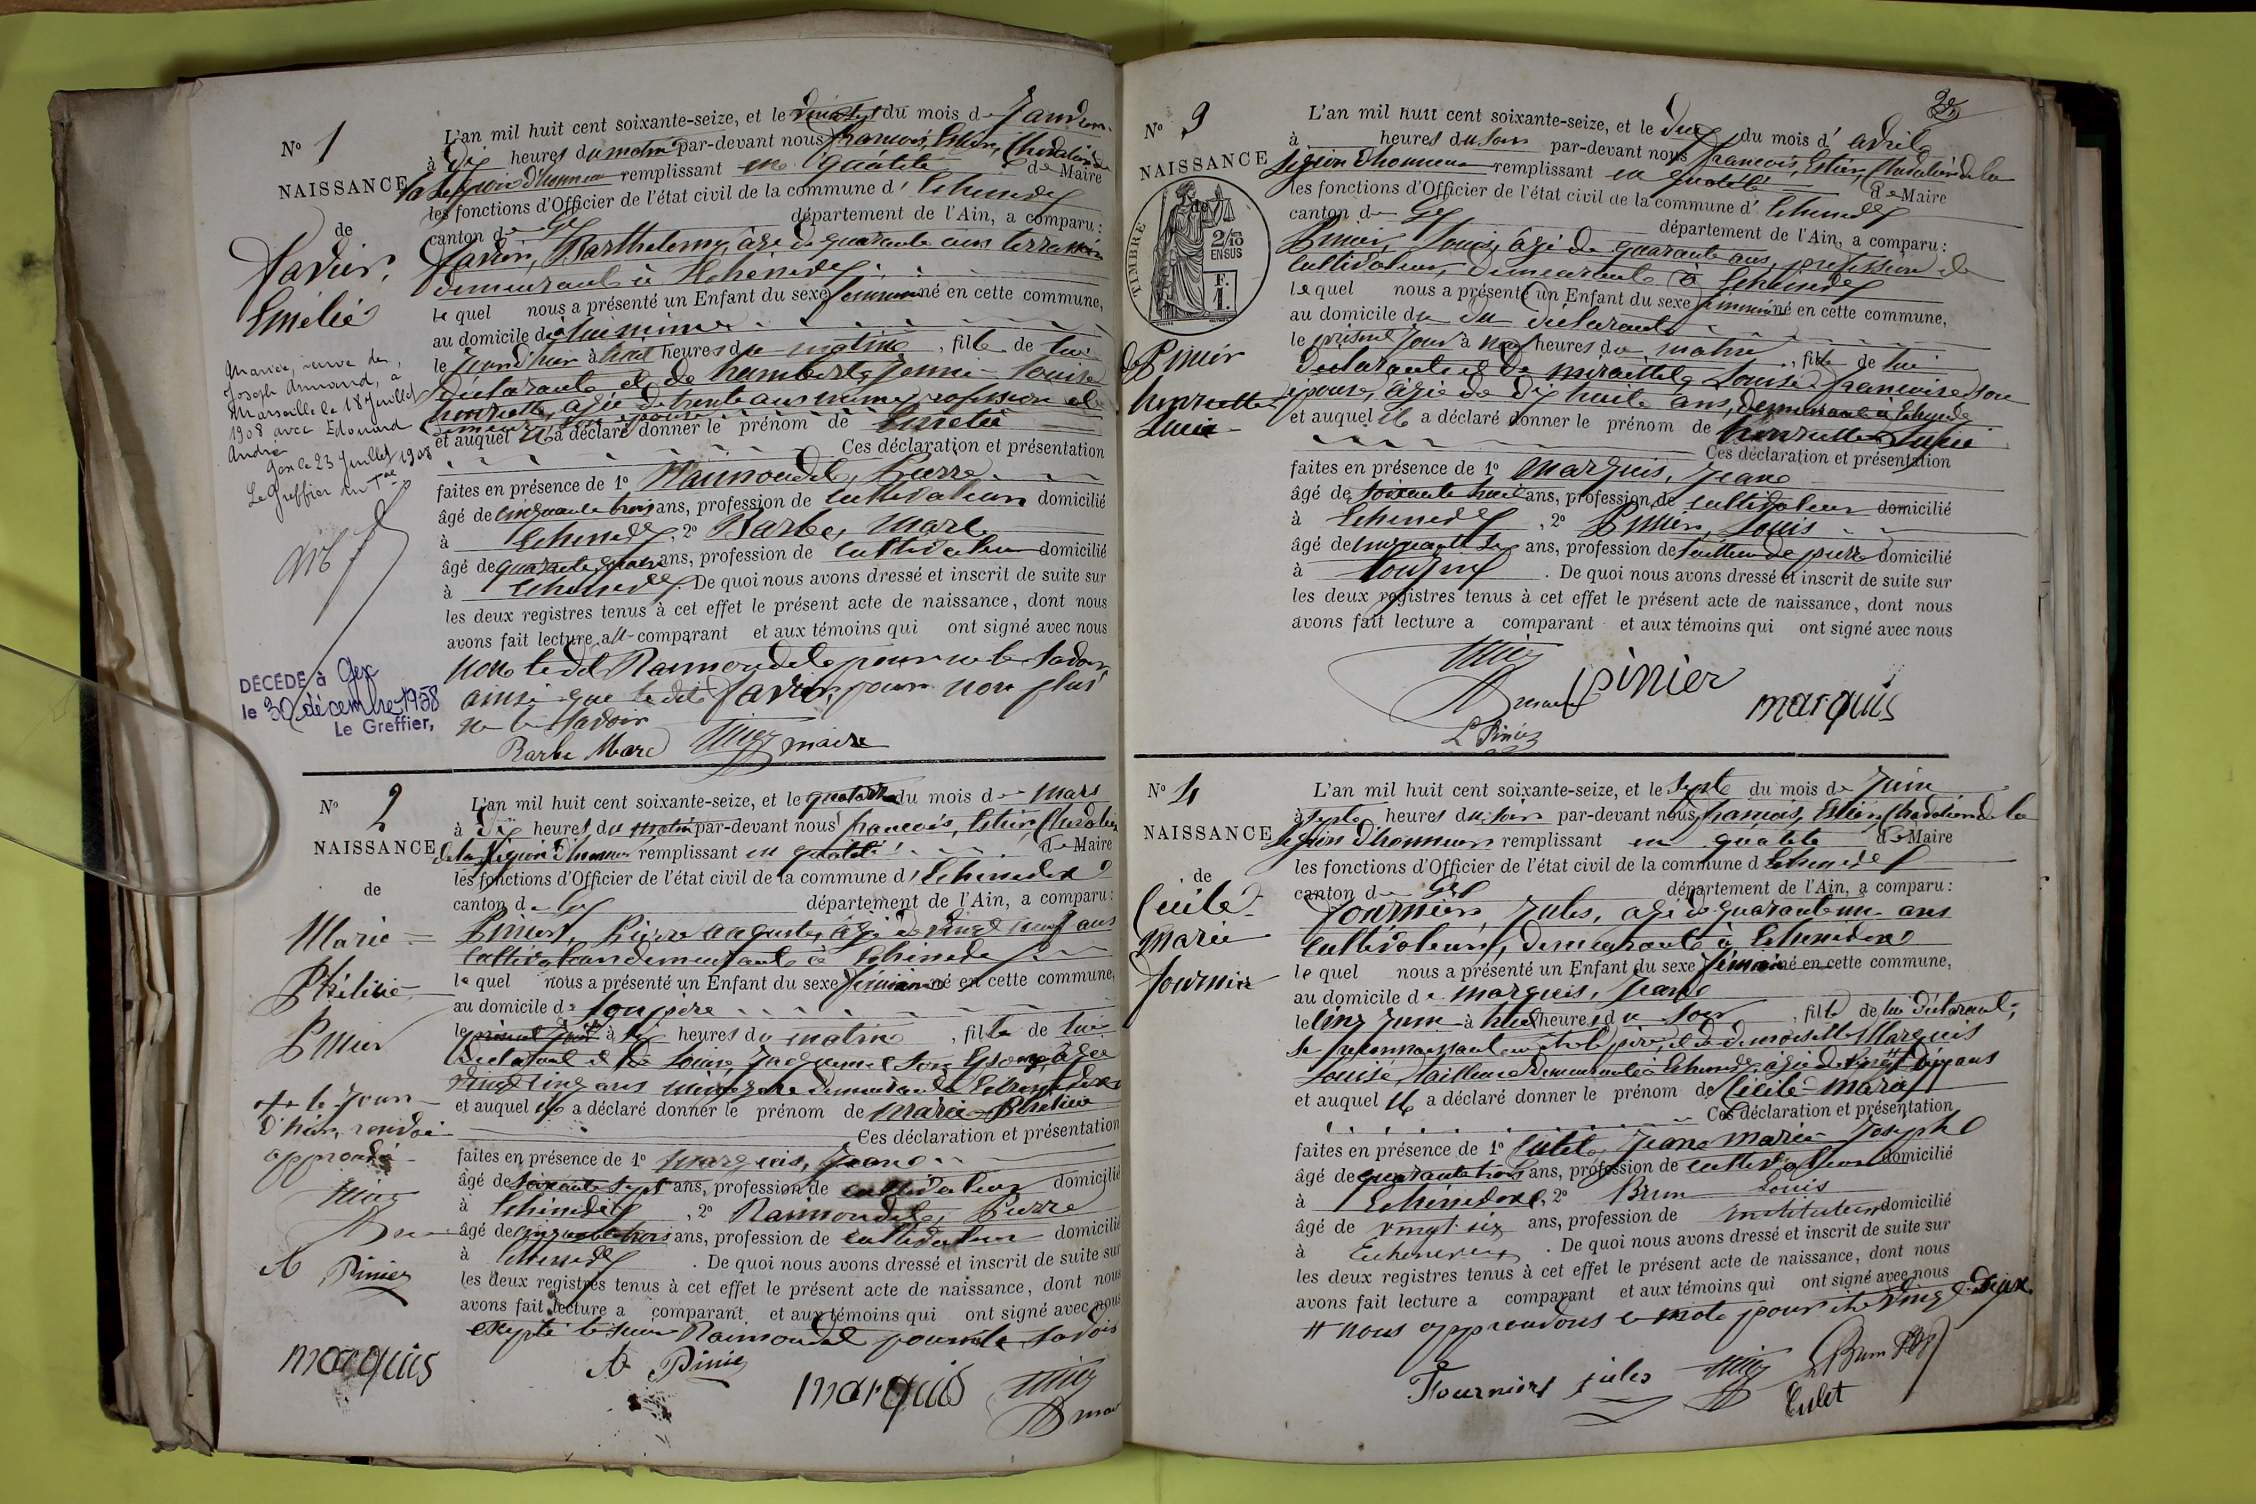 N° 1
NAISSANCE
de
Savier,
Emélie
Mariée, veuve de
Joseph Armand, à
Marseille le 18 Juillet
1908 avec Edouard
André
Gex le 23 Juillet 1908
Le Greffier du Tal
DÉCÉDÉ à Gex
le 30 décembre 1958
Le Greffier,
L'an mil huit cent soixante-seize, et le du mois de Janvier
à dix heures du matin par-devant nous françois, Estier, Chevalier de
la Légion d'honneur remplissant en qualité de Maire
les fonctions d'Officier de l'état civil de la commune d' Echenevex
canton de Gex département de l'Ain, a comparu :
Savier, Barthelemy, âgé de quarante ans terrassier
demeurant à Echenevex
le quel nous a présenté un Enfant du sexe féminin né en cette commune,
au domicile de
le jourd'hui à heures du matin, fille de lui
déclarant et de humbert, Jenni Louise
henriette, âgée de trente ans même profession et
et auquel il a déclaré donner le prénom de Emélie
Ces déclaration et présentation
faites en présence de 1° Raimondel, Pierre
âgé de cinquante trois ans, profession de cultivateur domicilié
à Echenevex, 2° Barbe, Marc
âgé de quarante ans, profession de cultivateur domicilié
à Echenevex. De quoi nous avons dressé et inscrit de suite sur
les deux registres tenus à cet effet le présent acte de naissance, dont nous
avons fait lecture au comparant et aux témoins qui ont signé avec nous
non le dit Raimondel pour ne le savoir,
ainsi que le dit Savier pour non plus
ne le savoir
Barbe Marc maire
N° 2
NAISSANCE
de
Marie
Philicie
Pinier
le jour
d'hier, renvoi
approuvé
A Pinier
marquis
L'an mil huit cent soixante-seize, et le quatorze du mois de mars
à dix heures du matin par-devant nous françois, Estier, Chevalier
de la Légion d'honneur remplissant en qualité de Maire
les fonctions d'Officier de l'état civil de la commune d' Echenevex
canton de Gex département de l'Ain, a comparu :
Pinier, Pierre auguste, âgé de vingt neuf ans
cultivateur demeurant à Echenevex
le quel nous a présenté un Enfant du sexe féminin né en cette commune,
au domicile de son père
le présent jour à heures du matin, fille de lui
déclarant et de Louise, Jaquemet son épouse, âgée
vingt cinq ans ménagère demeurant à Echenevex
et auquel il a déclaré donner le prénom de Marie Philicie
Ces déclaration et présentation
faites en présence de 1° Marquis, Jean
âgé de soixante sept ans, profession de cultivateur domicilié
à Echenevex, 2° Raimondel, Pierre
âgé de cinquante trois ans, profession de cultivateur domicilié
à Echenevex. De quoi nous avons dressé et inscrit de suite sur
les deux registres tenus à cet effet le présent acte de naissance, dont nous
avons fait lecture a comparant et aux témoins qui ont signé avec nous
excepté le sieur Raimondel pour ne le savoir
A Pinier marquis
N° 3
NAISSANCE
TIMBRE
2/10
EN SUS
F.
1.
de Pinier
henriette
Lucie
L'an mil huit cent soixante-seize, et le dix du mois d' avril
à heures du soir par-devant nous françois, Estier, Chevalier de la
Légion d'honneur remplissant en qualité de Maire
les fonctions d'Officier de l'état civil de la commune d' Echenevex
canton de Gex département de l'Ain, a comparu :
Pinier, Louis, âgé de quarante ans, profession de
cultivateur, demeurant à Echenevex
le quel nous a présenté un Enfant du sexe féminin né en cette commune,
au domicile du déclarant
le présent jour à heures du matin, fille de lui
déclarant et de Louise françoise son
épouse, âgée de dix huit ans, demeurant à Echenevex
et auquel il a déclaré donner le prénom de henriette Lucie
Ces déclaration et présentation
faites en présence de 1° Marquis, Jean
âgé de soixante huit ans, profession de cultivateur domicilié
à Echenevex, 2° Pinier, Louis
âgé de cinquante ans, profession de tailleur de pierre domicilié
à. De quoi nous avons dressé et inscrit de suite sur
les deux registres tenus à cet effet le présent acte de naissance, dont nous
avons fait lecture a comparant et aux témoins qui ont signé avec nous
pinier
marquis
L Pinier
N° 4
NAISSANCE
de
Cécile
Marie
fournier
L'an mil huit cent soixante-seize, et le sept du mois de Juin
à sept heures du soir par-devant nous françois, Estier Chevalier de la
Légion d'honneur remplissant en qualité de Maire
les fonctions d'Officier de l'état civil de la commune d Echenevex
canton de Gex département de l'Ain, a comparu :
fournier, Jules, âgé de quarante un ans
cultivateur, demeurant à Echenevex
le quel nous a présenté un Enfant du sexe féminin né en cette commune,
au domicile de marquis, Jean
le cinq Juin à heures du soir, fille de lui déclarant,
se reconnaissant en être le père, et de demoiselle Marquis
Louise, tailleuse demeurant à Echenevex âgée de vingt ans
et auquel il a déclaré donner le prénom de Cécile Marie
Ces déclaration et présentation
faites en présence de 1° Culet, Jean Marie Joseph
âgé de quarante trois ans, profession de cultivateur domicilié
à Echenevex, 2° Brun Louis
âgé de vingt six ans, profession de instituteur domicilié
à Echenevex. De quoi nous avons dressé et inscrit de suite sur
les deux registres tenus à cet effet le présent acte de naissance, dont nous
avons fait lecture a comparant et aux témoins qui ont signé avec nous
# nous approuvons le mot pour être vingt deux
Fournier jules Brun
Culet